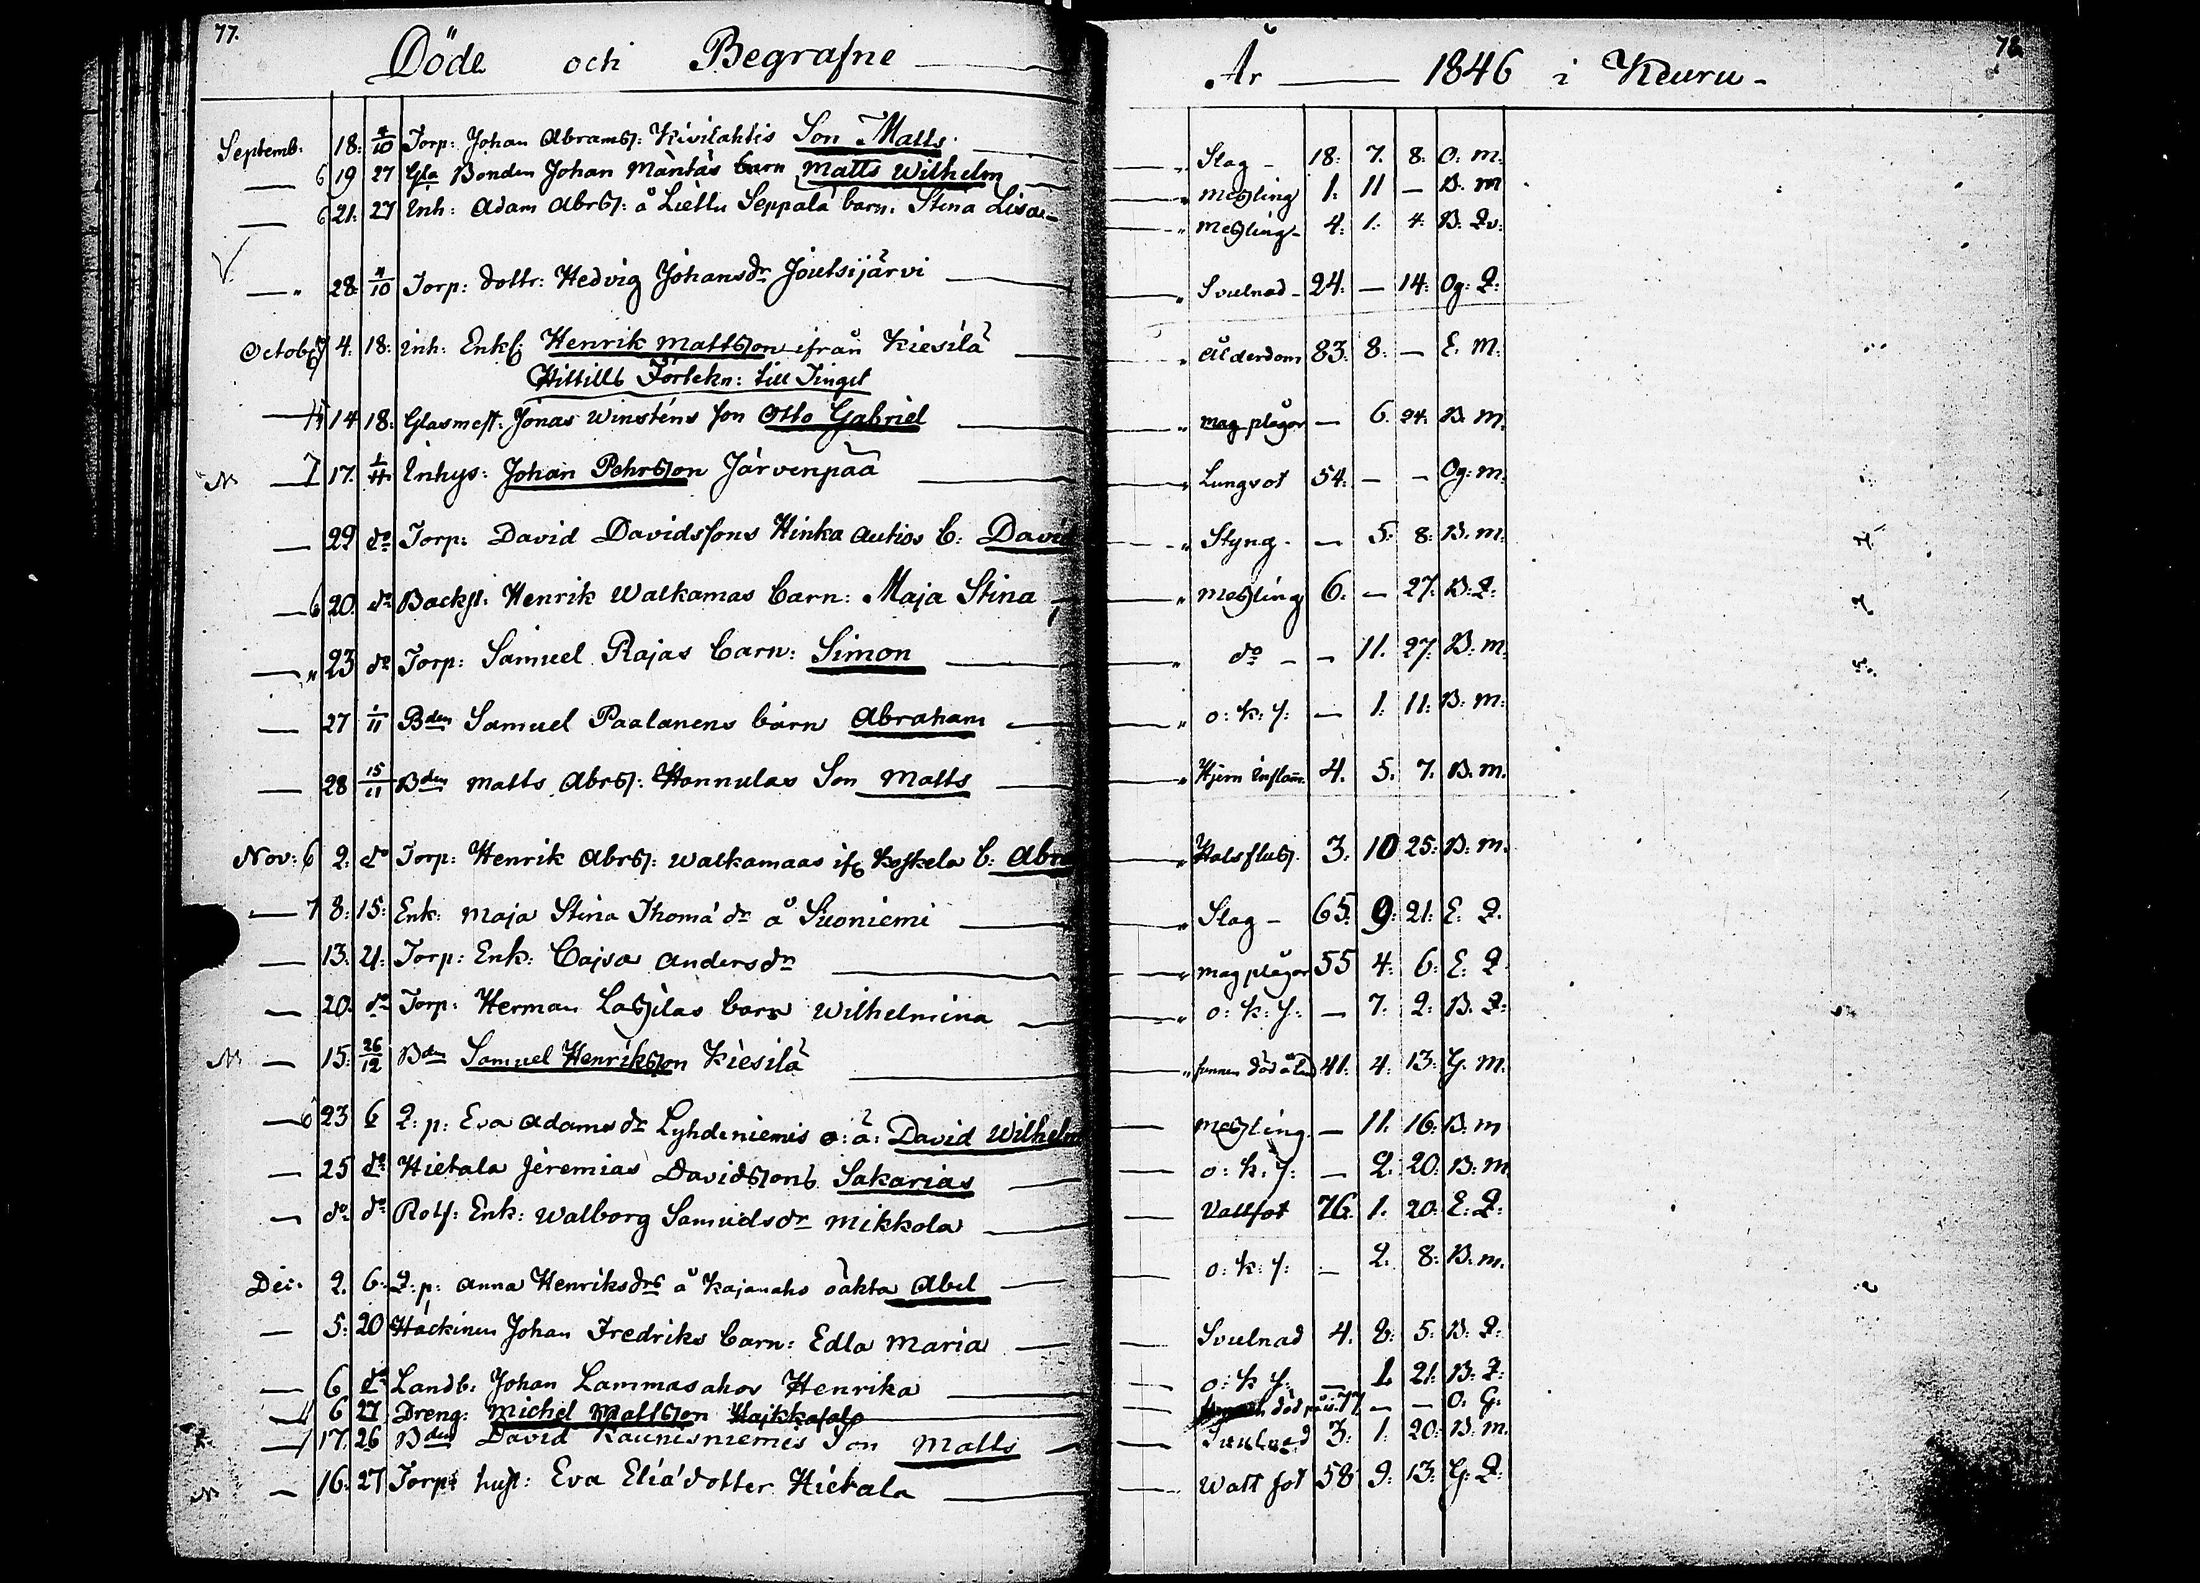 77. 78.
Döde och Begrafne År 1846 i Keuru
Septemb. 18. 4/10 Torp: Johan Abramss: Kivilahtis Son Matts. Slag 18: 7. 8. O: m.
6 19 27 Gla Bonden Johan Mäntäs barn Matts Wilhelm messling 1. 11 — B. m
6 21. 27 Inh: Adam Abrss: å Liettu Seppälä barn: Stina Lisa messling 4: 1: 4: B: Qv:
28. 4/10 Torp: dottr: Hedvig Johansdr Joutsijärvi Svulnad 24. — 14: Og: Q:
Octob. 4. 18: Inh: Enkl: Henrik Mattsson ifrån Kiesilä Ålderdom 83. 8: — E. m.
Hittills Förtekn: till Tinget
14 18: Glasmest: Jonas Winsténs son Otto Gabriel mag plågor — 6. 24. B. m.
N. 7 17. 1/11 Inhys: Johan Pehrsson Järvenpää Lungsot 54. — — Og: m.
29 do Torp: David Davidssons Hinka autios b: David Styng. — 5. 8: B. m.
6 20. do Backst: Henrik Walkamas barn: Maja Stina messling 6. — 27. B: Q:
23 do Torp: Samuel Rajas barn: Simon do — 11. 27. B: m.
27 1/11 Bden Samuel Paalanens barn Abraham o: k: s: — 1. 11: B: m.
28 15/11 Bden Matts Abrss: Hannulas Son Matts Hjern Inflam. 4. 5. 7. B. m.
Nov: 6 2. do Torp: Henrik Abrss: Walkamaas ifr Koskela b: Abr Halsfluss. 3. 10 25: B: m.
7 8: 15: Enk: Maja Stina Thomá dr å Suoniemi Slag 65. 9: 21: E. Q.
13: 21: Torp: Enk: Cajsa Andersdr mag plågor 55 4: 6: E. Q.
20. do Torp: Herman Lassilas barn Wilhelmina o: k: s: — 7. 2: B. Q:
15: 26/12 Bden Samuel Henriksson Kiesilä funnen död 41. 4. 13: G. m.
6 23 6 Q: p: Eva Adamsdr Lyhdeniemis o: ä: David Wilhelm messling. — 11. 16: B: m
25 do Hietala Jeremias Davidssons Sakarias o: k. s: — 2. 20: B: m
do do Rots: Enk: Walborg Samuelsdr Mikkola Vattsot 76. 1. 20: E. Q:
Dec. 2. 6. Q: p: Anna Henriksdrs å Kajanaho oäkta Abel o: k: s: — 2. 8: B. m.
5: 20 Häckinen Johan Fredriks barn: Edla Maria Svulnad 4. 8: 5: B: Q:
6 do Landb: Johan Lammasahos Henrika o: k s: — 1. 21. B: Q:
6 27 Dreng: Michel Mattsson 77. — — O. G.
17. 26 Bden David Kaunisniemis Son Matts Svulnad 3. 1. 20: B: m.
N. 16. 27 Torp: hust: Eva Eliá dotter Hietala Watt sot 58 9: 13: G: Q: